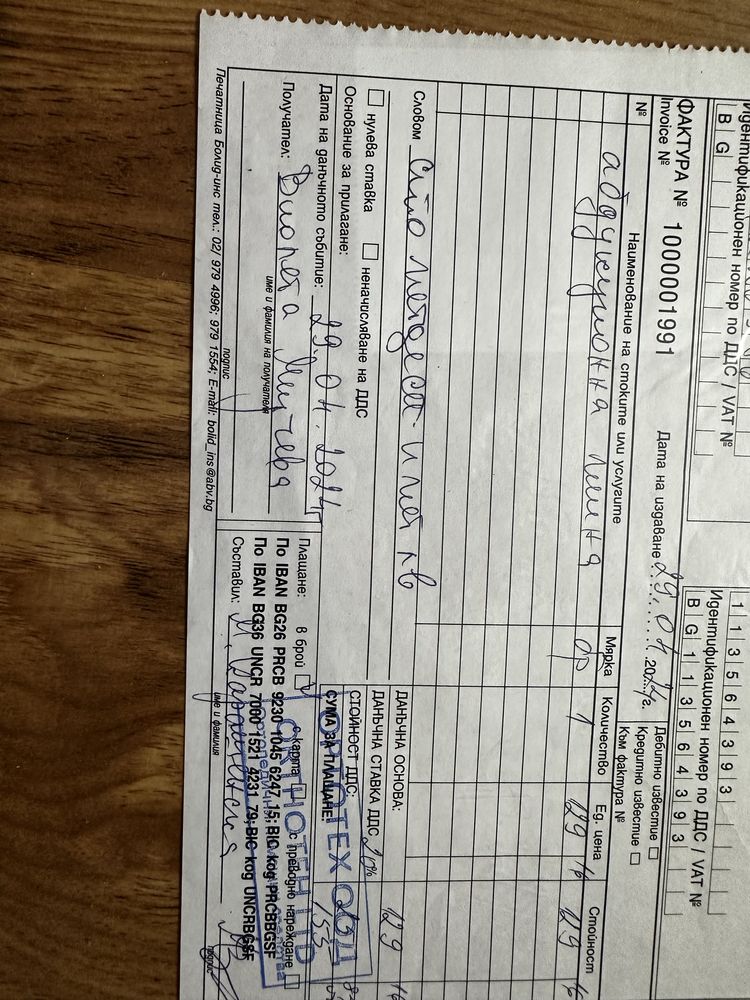 Идентификационен номер по ДДС / VAT №
BG
113564393
Идентификационен номер по ДДС / VAT №
BG113564393
ФАКТУРА № 1000001991
Invoice №
Дата на издаване 29.04.2024г.
Дебитно известие
Кредитно известие
Към фактура №
№ Наименование на стоките или услугите Мярка Количество Ед. цена Стойност
абдукционна шина бр 1 129 129
Словом Сто петдесет и пет лв
ДАНЪЧНА ОСНОВА: 129
нулева ставка неначисляване на ДДС
ДАНЪЧНА СТАВКА ДДС 20%
Основание за прилагане:
СТОЙНОСТ ДДС:
Дата на данъчното събитие: 29.04.2024г
СУМА ЗА ПЛАЩАНЕ:
ОРТОТЕХ ООД
ORTHOTEH LTD
Получател: Виолета Мичева
име и фамилия на получателя
подпис
Плащане: в брой с карта с преводно нареждане
По IBAN BG26 PRCB 9230 1045 6247 15; BIC kog PRCBBGSF
По IBAN BG36 UNCR 7000 1521 4231 79; BIC kog UNCRBGSF
Съставил: М.
име и фамилия
подпис
Печатница Болид-инс тел.: 02/ 979 4996; 979 1554; E-mail: bolid_ins@abv.bg